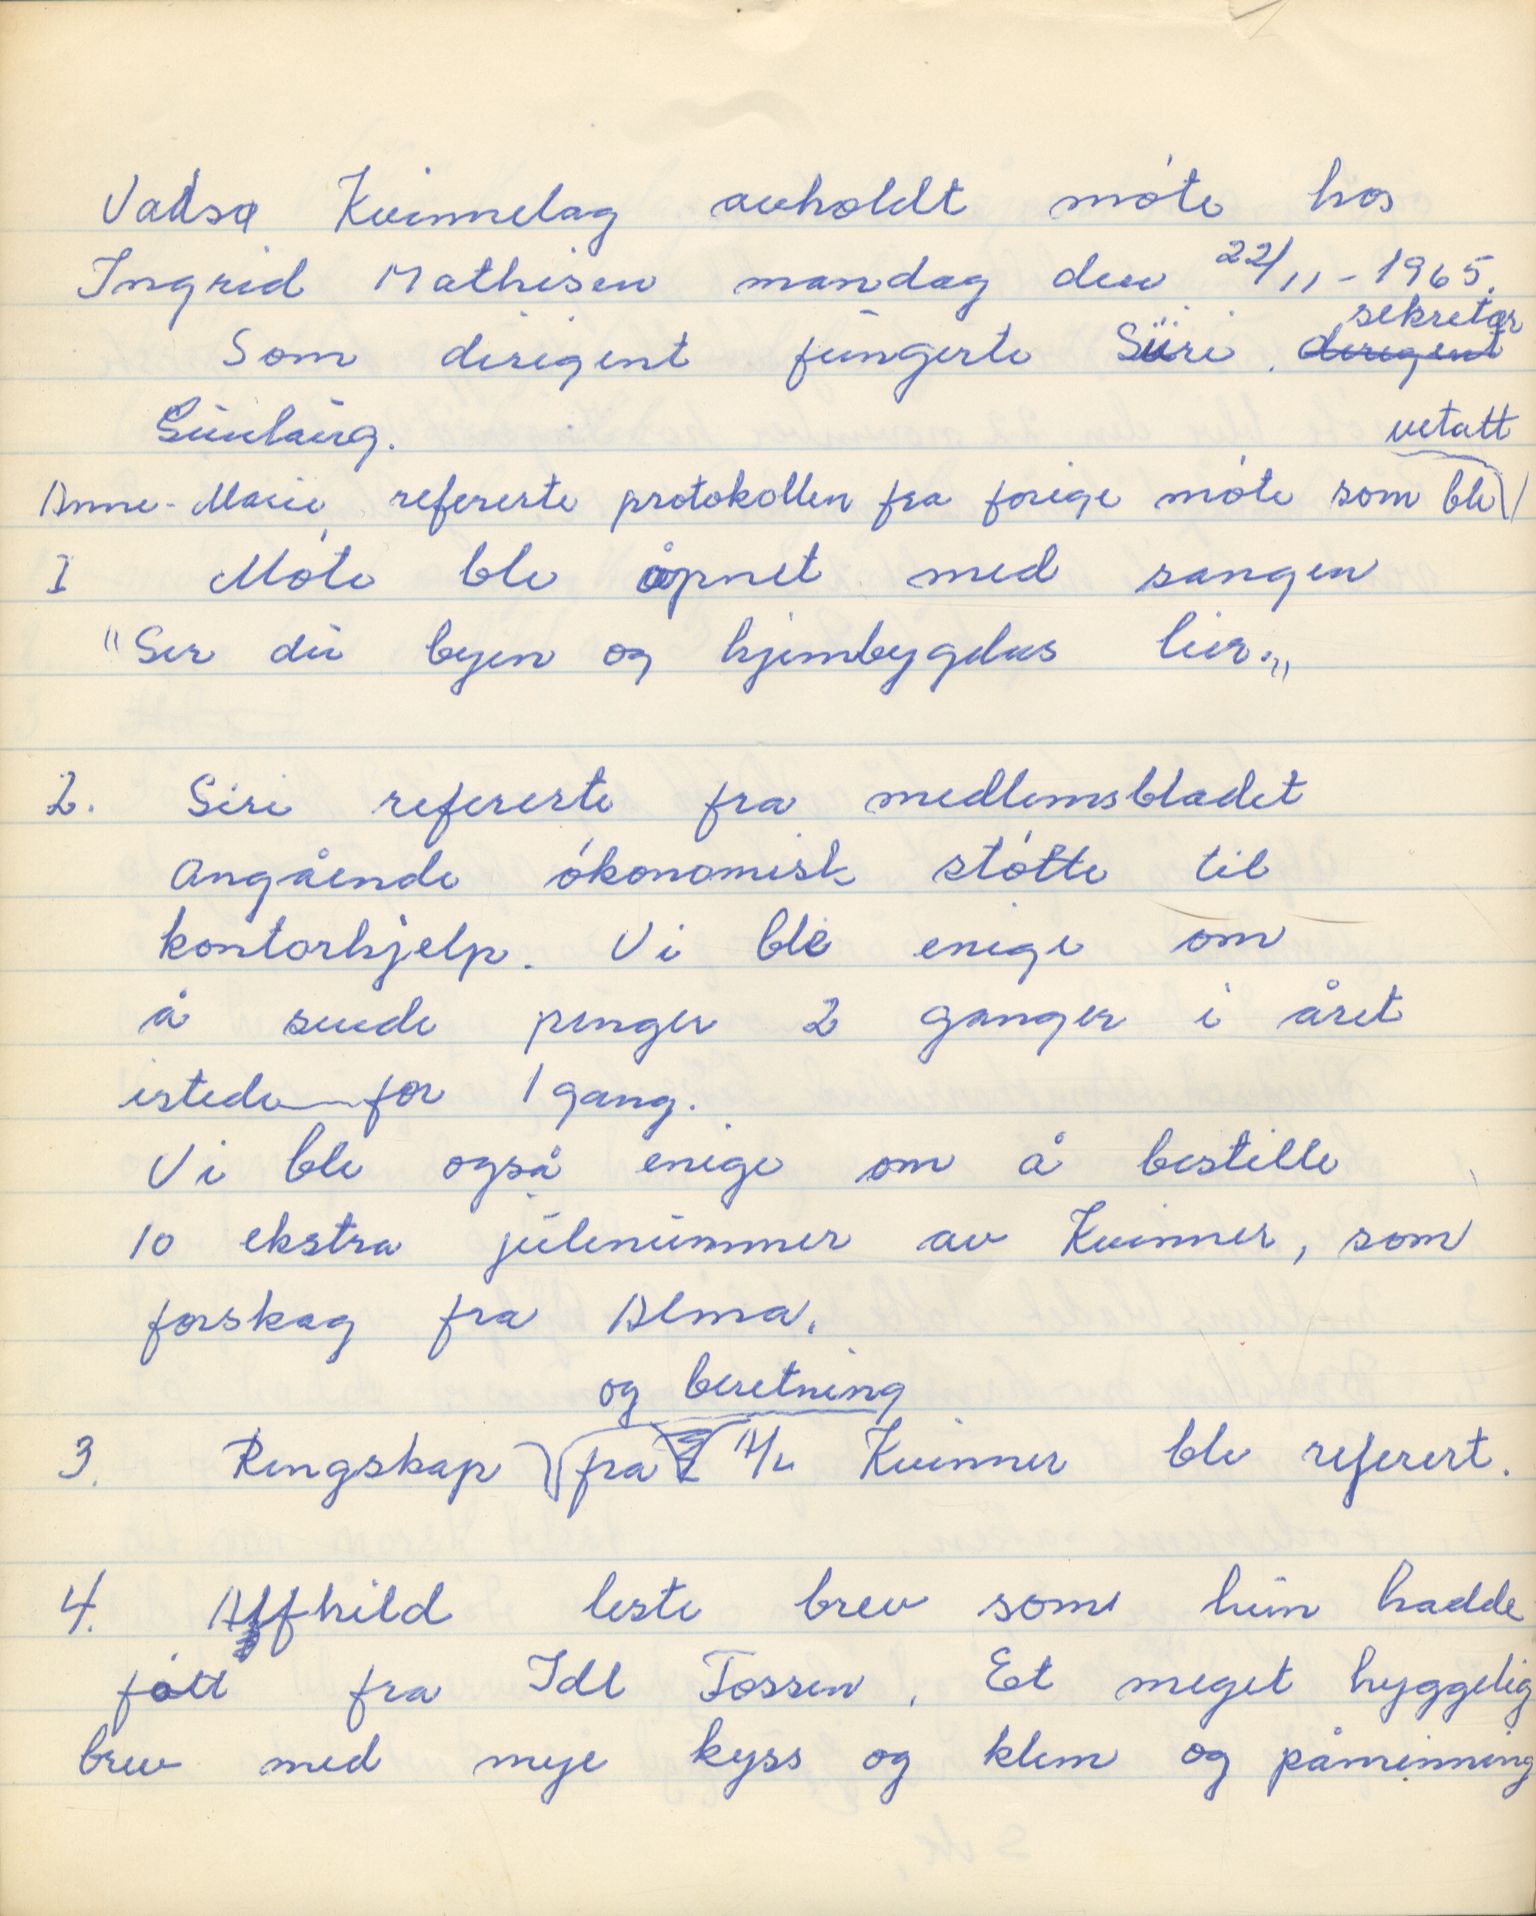 Vadsø Kvinnelag avholdt møte hos
Ingrid Mathisen mandag den 22/11-1965.
Som dirigent fungerte Siri. dirigent sekretær
Gunlaug.
Anne-Marie refererte protokollen fra forige møte som ble vetatt
I Møte ble åpnet med sangen
"Ser du byen og hjembygdens lier."
2. Siri refererte fra medlemsbladet
angående økonomisk støtte til
kontorhjelp. Vi ble enige om
å sende penger 2 ganger i året
istede for 1 gang.
Vi ble også enige om å bestille
10 ekstra julenummer av Kvinner, som
forskag fra Alma.
og beretning
3. Rengskap fra A/L Kvinner ble referert.
4. Alfhild leste brev som hun hadde
fått fra Idl Fossen. Et meget hyggelig
brev med mye kyss og klem og påminning